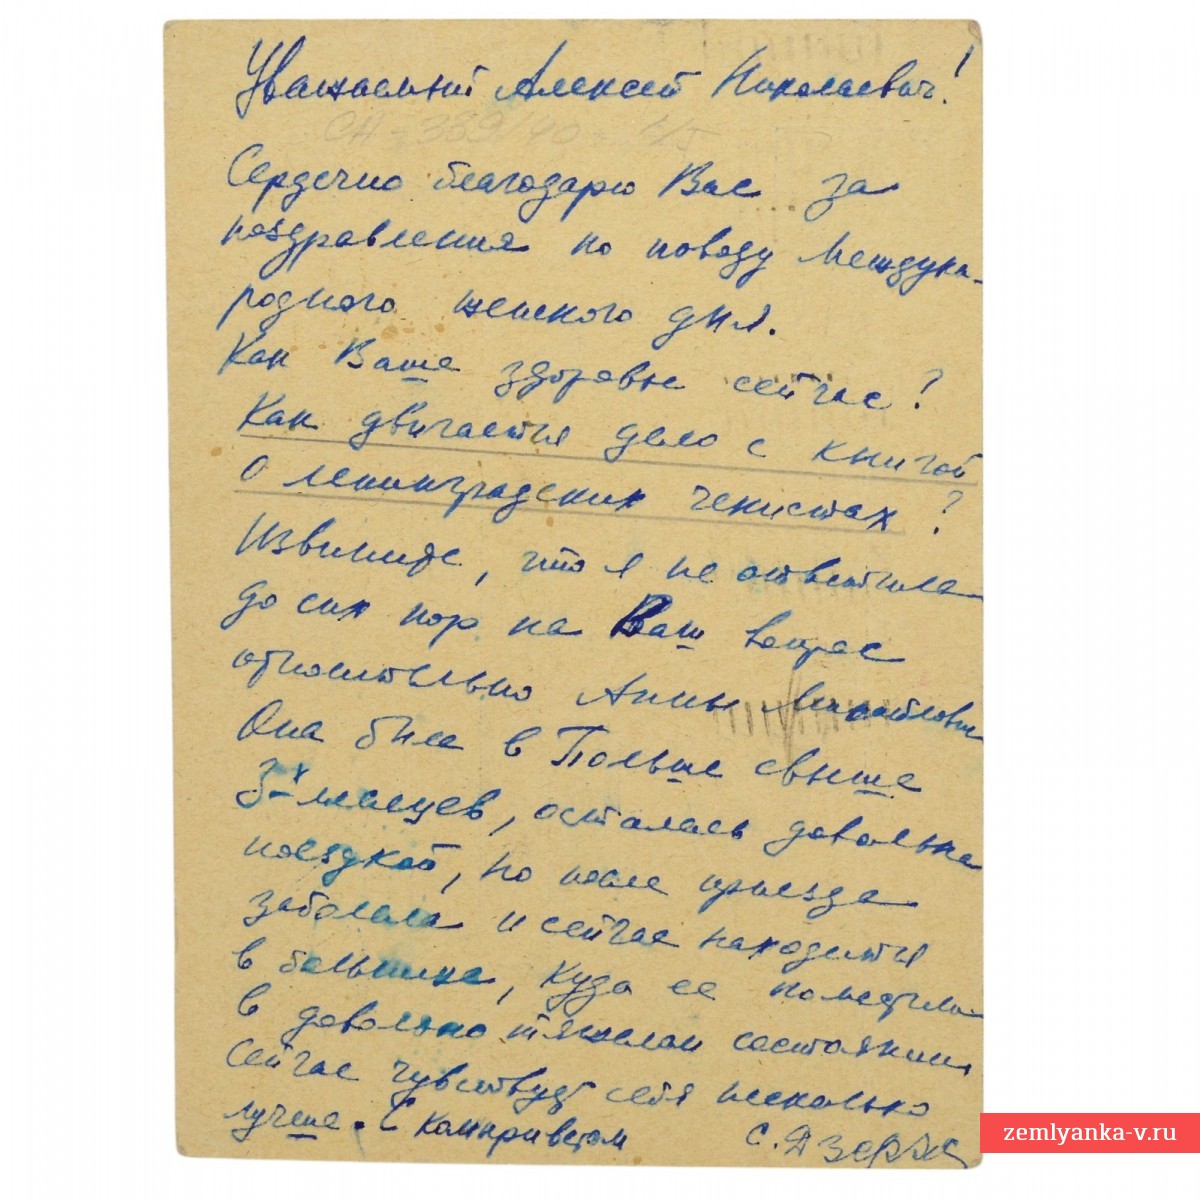 Уважаемый Алексей Николаевич!
СН-339/40
Сердечно благодарю Вас за
поздравления по поводу Междуна-
родного женского дня.
Как Ваше здоровье сейчас?
Как двигается дело с книгой
о ленинградских чекистах?
Извините, что я не ответила
до сих пор на Ваш вопрос
относительно Анны Михайловны
Она была в Польше свыше
3-х месяцев, осталась довольна
поездкой, но после приезда
заболела и сейчас находится
в больнице, куда ее поместили
в довольно тяжелом состоянии
сейчас чувствует себя несколько
лучше. С комприветом С. Дзерж
zemlyanka-v.ru